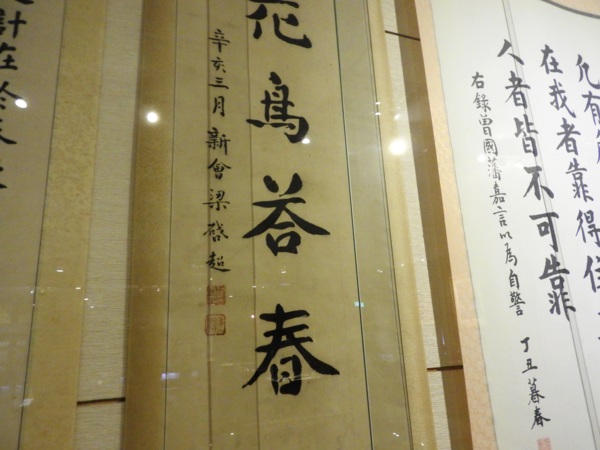 在我者靠得住
人者皆不可靠
右錄曾國藩嘉言以為自警
丁丑暮春
花鳥荅春
辛亥三月新會梁啓超
計在於